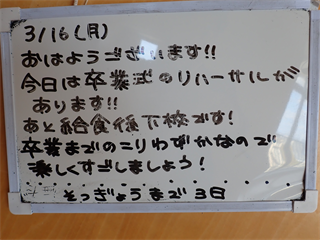 3/16(月)
おはようございます!!
今日は卒業式のリハーサルが
あります!!
あと給食後下校です!
卒業までのこりわずかなので
楽しくすごしましょう!
そつぎょうまで 3日